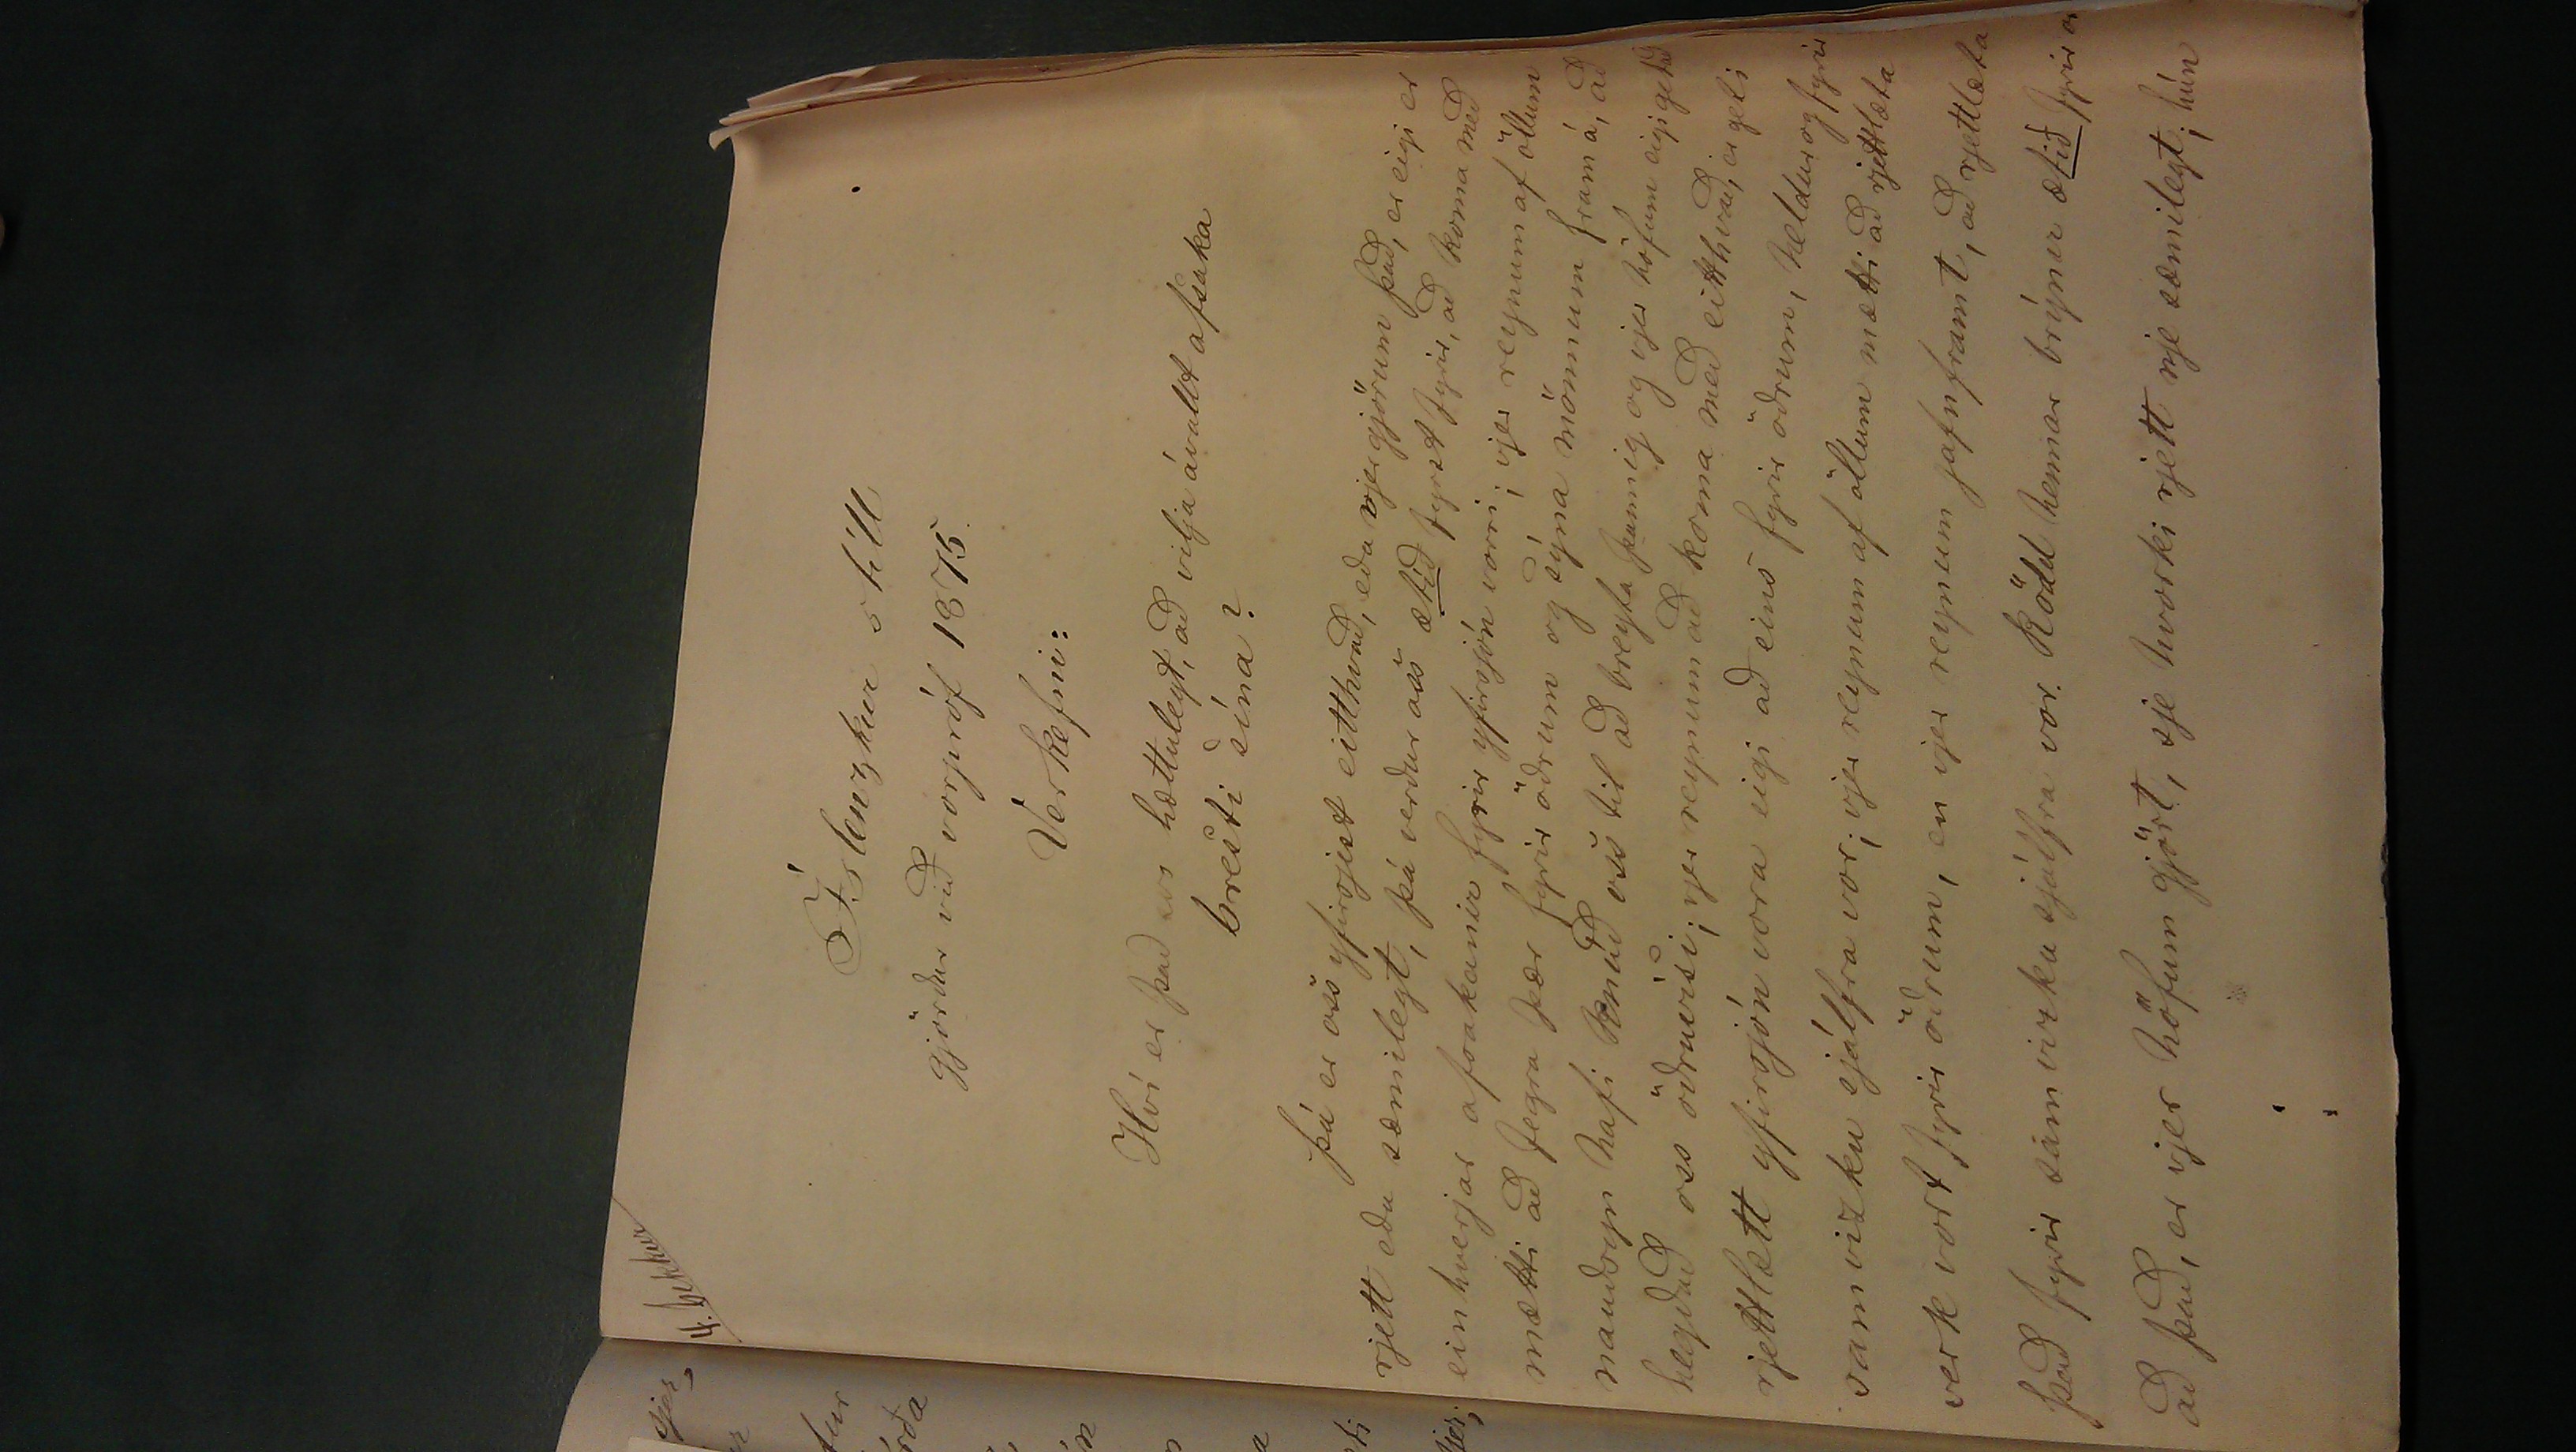 4. bekkur
Íslenzkur stíll
gjörður við vorpróf 1875.
Verkefni:
Hví er það oss hættulegt, að vilja ávallt afsaka
bresti sína?
Þá er oss yfirsjest eitthvað, eða vjer gjörum það, er eigi er
rjett eða sæmilegt, þá verður oss ætið fyrst fyrir, að koma með
einhverjar afsakanir fyrir yfirsjón vorri; vjer reynum af öllum
mætti að fegra þær fyrir öðrum og sýna mönnum fram á, að
nauðsyn hafi knúð oss til að breyta þannig og vjer höfum eigi getað
hegðað oss öðruvísi; vjer reynum að koma með eitthvað, er geti
rjettlætt yfirsjón vora eigi að eins fyrir öðrum, heldur og fyrir
samvizku sjálfra vor; vjer reynum af öllum mætti að rjettlæta
verk vort fyrir öðrum, en vjer reynum jafnframt, að rjettlæta
það fyrir samvizku sjálfra vor. Rödd hennar brýnir ætið fyrir o
að það, er vjer höfum gjört, sje hvorki rjett nje sæmilegt; hún